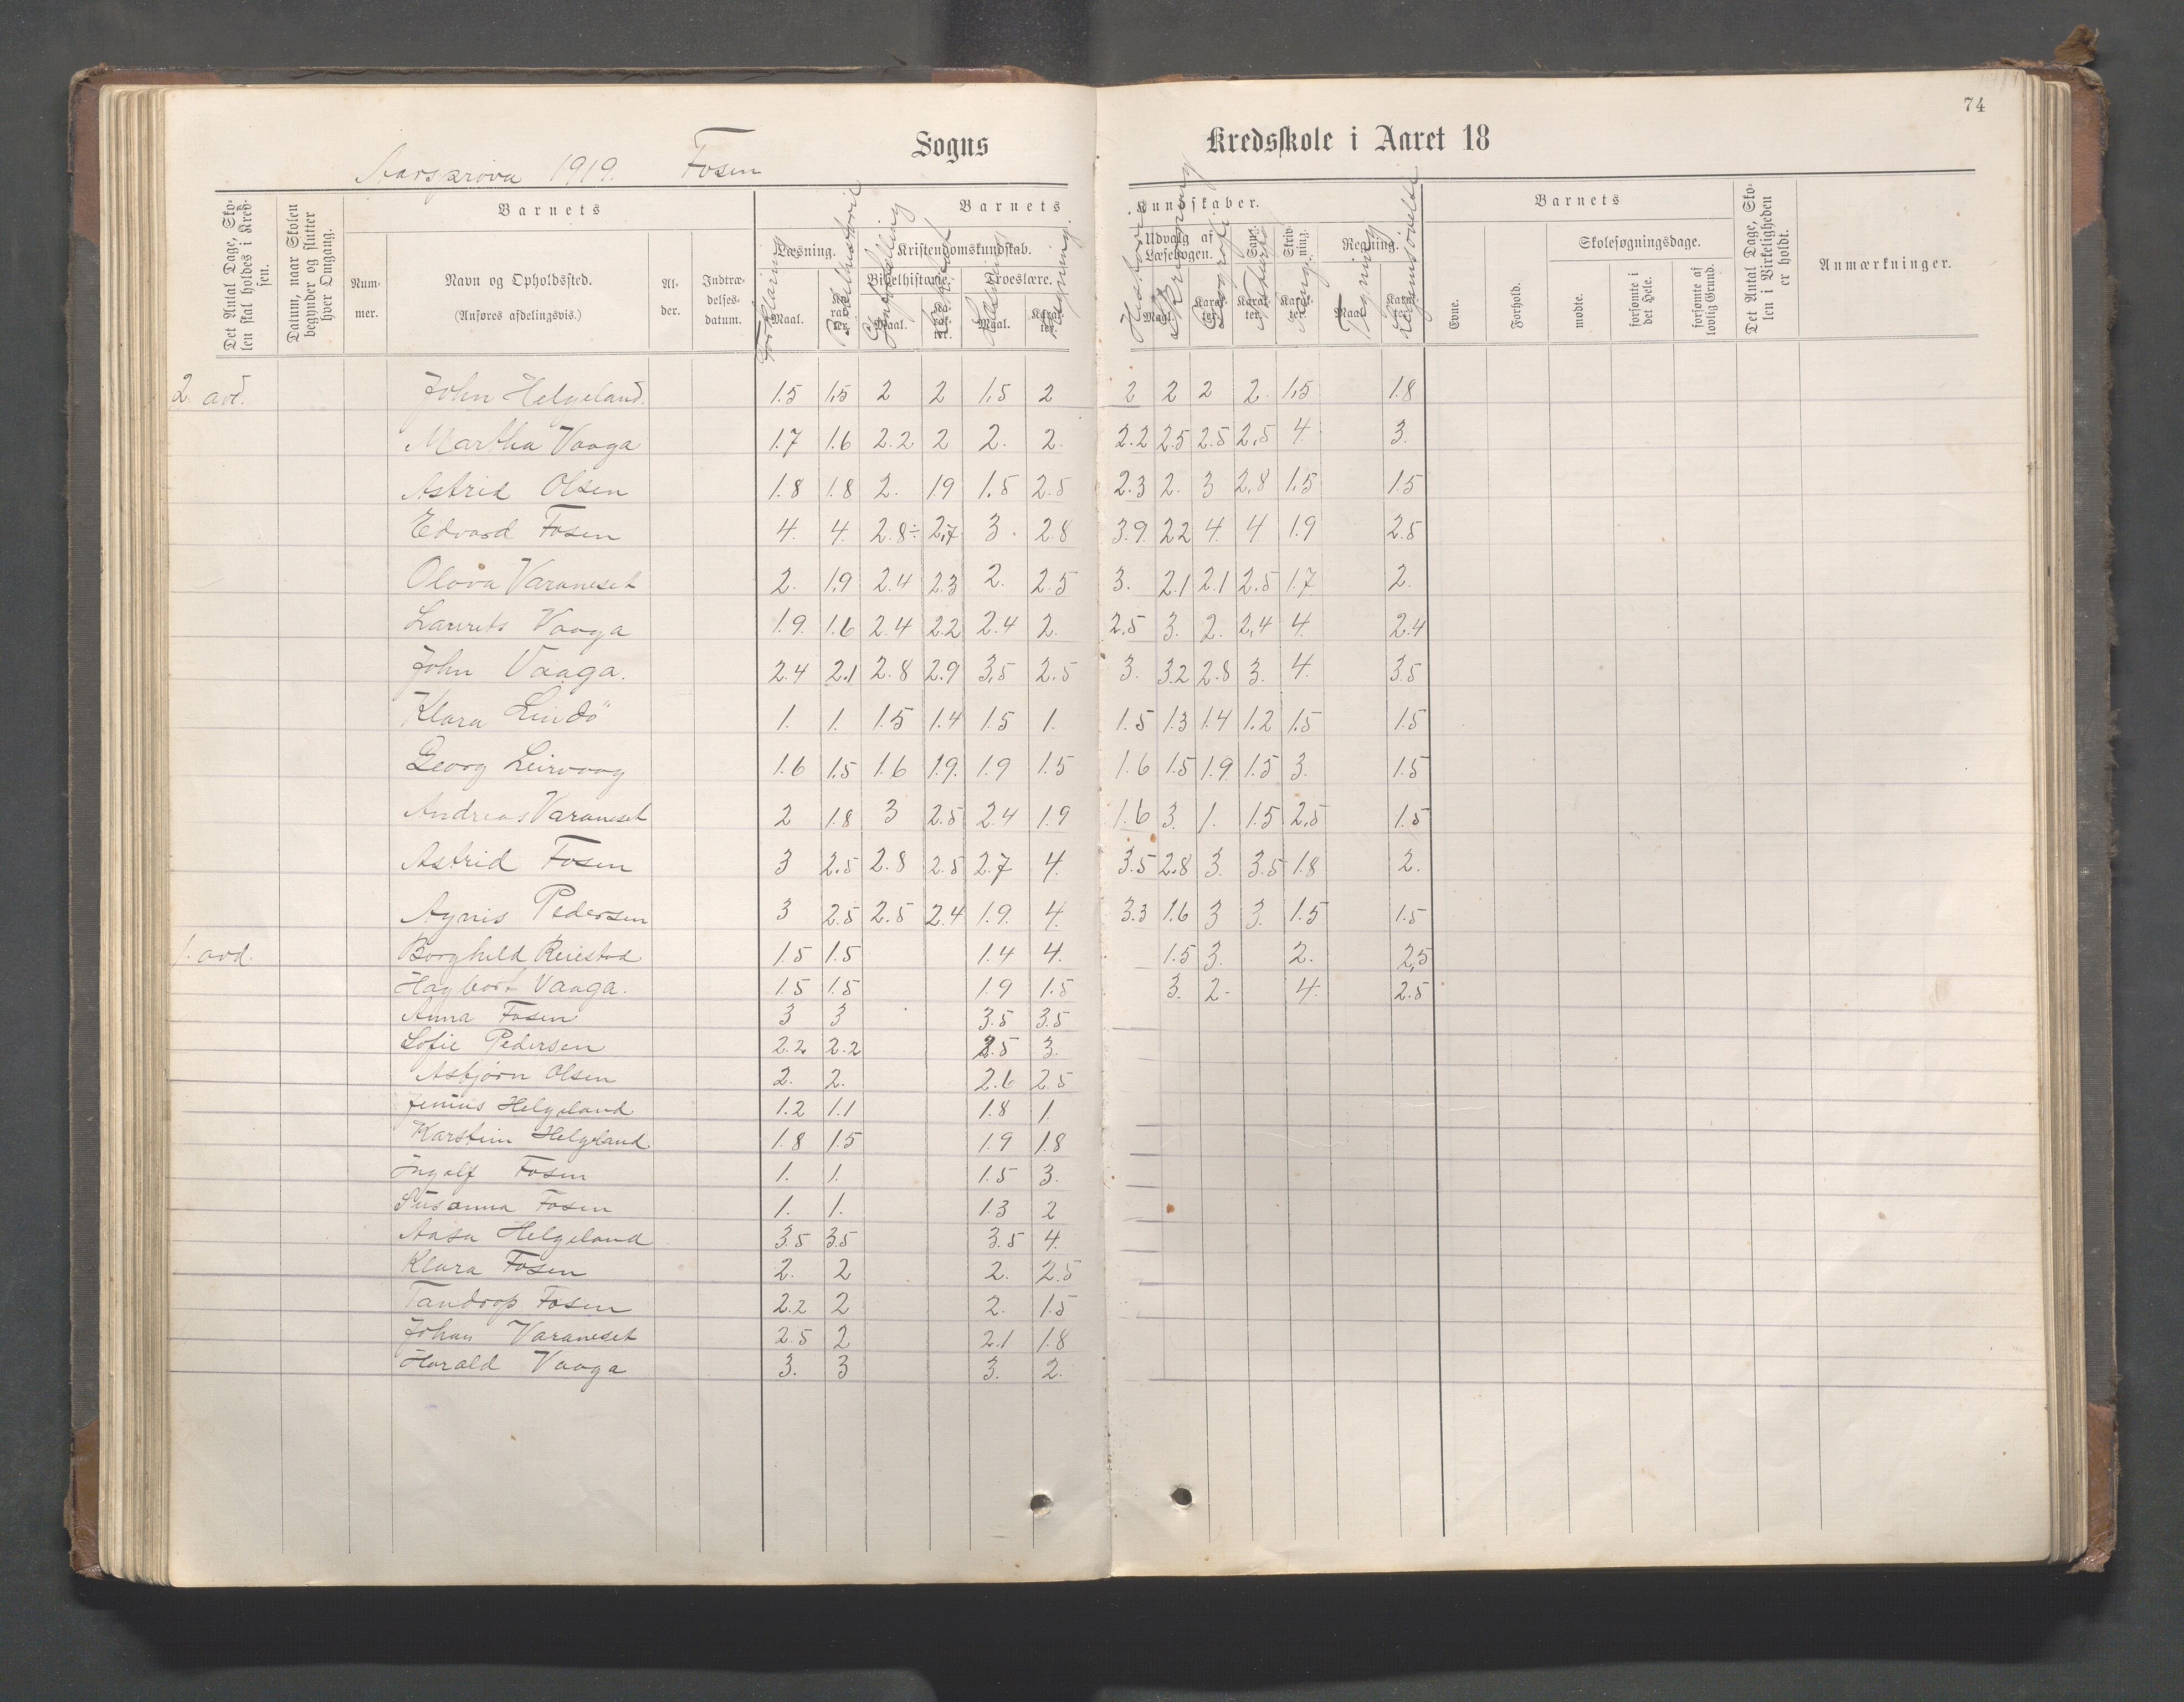 74
Sogns Kredsskole i Aaret 18
Aarsprøva 1919. Fosen
Det Antal Dage, Skolen skal holdes i Kredsen.
Datum, naar Skolen begynder og slutter hver Omgang.
Barnets
Nummer.
Navn og Opholdssted.
(Anføres afdelingsvis.)
Alder.
Indtrædelsesdatum.
Barnets
Læsning.
Maal.
Karakter.
Kristendomskundskab.
Bibelhistorie.
Maal.
Karakter.
Troeslære.
Maal.
Karakter.
Kundskaber.
Udvalg af Læsebogen.
Maal.
Karakter.
Sang.
Karakter.
Skrivning.
Karakter.
Regning.
Maal.
Karakter.
Barnets
Evne.
Forhold.
Skolesøgningsdage.
mødte.
forsømte i det Hele.
forsømte af lovlig Grund.
Det Antal Dage, Skolen i Virkeligheden er holdt.
Anmærkninger.
Forklaring Bibelhistorie Regning. Historie Skrivning Geografi Sang Tegning Legemsøvelse
2. avd. John Helgeland. 1.5 1,5 2 2 1,5 2 2 2 2 2. 1,5 1.8
Martha Vaaga 1.7 1.6 2.2 2 2. 2. 2.2 2.5 2.5 2,5 4. 3.
Astrid Olsen 1.8 1.8 2. 1.9 1,5 2.5 2.3 2. 3 2,8 1.5 1.5
Edvard Fosen 4. 4. 2.8÷ 2,7 3. 2.8 3.9. 2.2 4. 4 1.9 2.5
Olova Varaneset 2. 1,9 2.4 2.3 2. 2.5 3. 2.1 2.1 2.5 1.7. 2.
Laurits Vaaga 1.9. 1.6 2.4 2.2 2.4 2. 2.5 3. 2. 2,4 4. 2.4
John Vaaga. 2.4 2.1 2.8 2.9 3,5 2.5 3. 3.2 2.8 3. 4. 3.5
Klara Lindö 1. 1. 1.5 1.4 1.5 1. 1.5 1.3 1.4 1.2 1.5 1.5
Georg Leirvaag 1.6 1.5 1.6 1.9. 1.9 1.5 1.6 1.5 1.9. 1.5 3. 1.5
Andreas Varaneset 2 1.8 3 2.5 2.4 1.9 1.6 3. 1. 1.5 2,5 1.5
Astrid Fosen 3 2.5 2.8 2.5 2.7 4. 3.5 2.8 3. 3.5 1.8 2.
Agnis Pedersen 3 2.5 2.5 2.4 1.9. 4. 3.3 1.6 3 3. 1.5 1.5
1. avd. Borghild Reiestad 1.5 1.5 1.4 4. 1.5 3. 2. 2,5
Hagbart Vaaga. 1.5 1.5 1.9 1.5 3. 2. 4. 2.5
Anna Fosen 3 3 3.5 3.5
Sofie Pedersen 2.2 2.2 2.5 3.
Asbjørn Olsen 2. 2. 2.6 2.5
Jenius Helgeland 1.2 1.1 1.8 1.
Karstein Helgeland. 1.8 1.5 1.9 1.8
Ingolf Fosen 1. 1. 1.5 3.
Susanna Fosen 1. 1. 1.3 2
Aasa Helgeland 3.5 3.5 3.5 4.
Klara Fosen 2. 2 2. 2.5
Tandrop Fosen 2.2 2 2. 1.5
Johan Varaneset 2.5 2 2.1 1.8
Harald Vaaga 3. 3 3. 2.